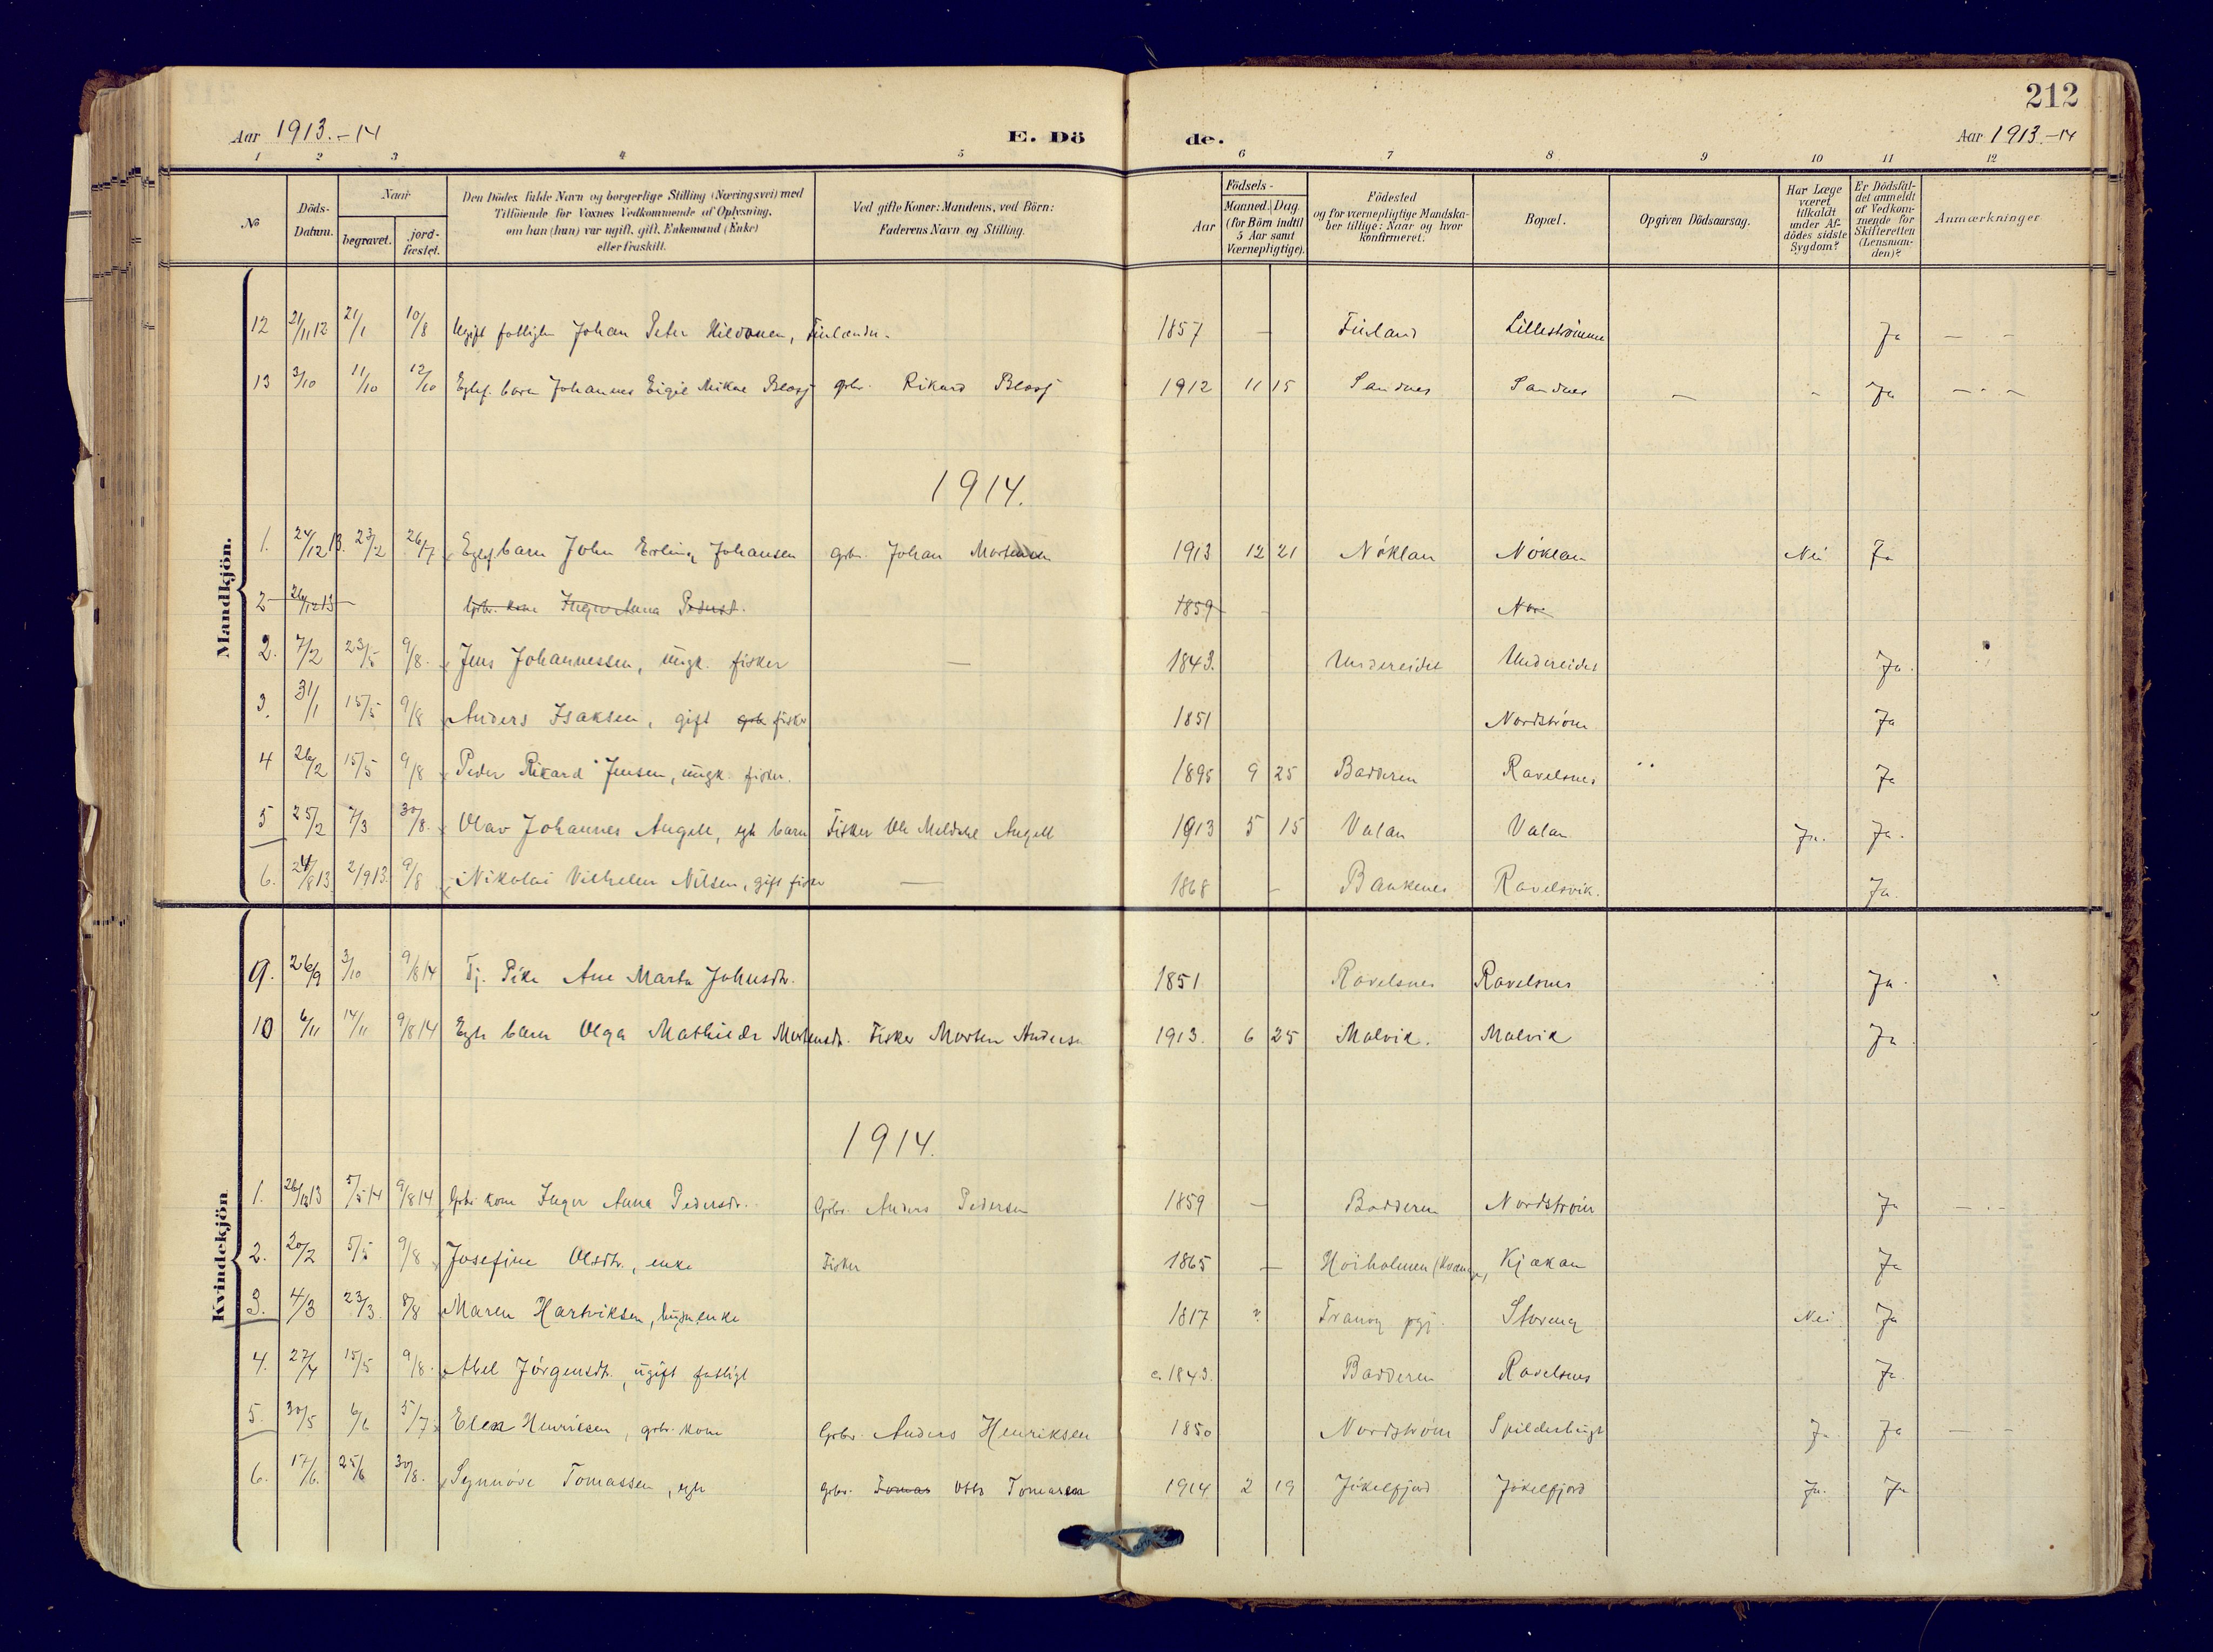 212
Aar 1913.-14 E. Dö de. Aar 1913.-14
1 2 3 4 5 6 7 8 9 10 11 12
No
Döds-Datum.
Naar
begravet.
jord-fæstet.
Den Dödes fulde Navn og borgerlige Stilling (Næringsvei) med
Tilföiende for Voxnes Vedkommende af Oplysning,
om han (hun) var ugift, gift, Enkemand (Enke)
eller fraskilt.
Ved gifte Koner: Mandens, ved Börn:
Faderens Navn og Stilling.
Födsels-
Aar
Maaned. Dag.
(for Börn indtil
5 Aar samt
Værnepligtige).
Födested
og for værnepligtige Mandska-
ber tillige: Naar og hvor
konfirmeret.
Bopæl.
Opgiven Dödsaarsag.
Har Læge
været
tilkaldt
under Af-
dödes sidste
Sygdom?
Er Dödsfal-
det anmeldt
af Vedkom-
mende for
Skifteretten
(Lensman-
den)?
Anmærkninger
Mandkjön.
12 21/11 12 21/1 10/8 Ugift fattiglem Johan Peter, 1857 — Finland Lillestrømmen Ja — -
13 3/10 11/10 12/10 barn Johannes Mikal gbr. Rikard 1912 11 15 Sandnes Sandnes — - Ja — - —
1914.
1. 24/12 13. 23/2 26/7 barn John Erling Johansen gbr. Johan Mortensen 1913 12 21 Nöklan Nöklan Nei Ja
2 26/12 13 Gbr. kone Inger Anna Pedersd. 1859 - Nor
2. 7/2 23/5 9/8. Jens Johannessen, ungk. fisker — 1843. Undereidet Undereidet Ja.
3. 31/1 15/5 9/8 Anders Isaksen, gift gbr. fisker 1851 Nordström Ja
4 26/2 15/5 9/8 Peder Rikard Jensen, ungk. fisker. 1895 9 25 Badderen Ravelsnes Ja
5 25/2 7/3 30/8. Olav Johannes Angell, egte barn Fisker Ole Meldahl Angell 1913 5 15 Valan Valan Ja. Ja.
6. 24/8 13 2/9 13. 9/8 Nikolai Vilhelm Nilsen, gift fisker — 1868 - Bankenes Ravelsvik. Ja.
Kvindekjön
9. 26/9 3/10 9/8 14 Tj. Pike Ane Marta Johnsdtr. 1851 Ravelsnes Ravelsnes Ja.
10 6/11 14/11 9/8 14 Egte barn Olga Mathilde Mortensdtr. Fisker Morten Andersen 1913. 6 25 Malvik. Malvik Ja
1914.
1. 26/12 13 5/5 14 9/8 14 Gbr. kone Inger Anna Pedersdtr. Gbr. Anders Pedersen 1859 — Badderen Nordström Ja — . —
2. 20/2 5/5 9/8 Josefine Olsdtr., enke Fisker 1865 — Höiholmen Kjækan Ja
3. 4/3 23/3. 8/8 Maren Hartviksen, enke 1817 Tranöy pgj. Storeng Nei. Ja
4. 27/4 15/5 9/8. Abel Jörgensdtr., ugift fattigl c. 1843. Badderen Ravelsnes Ja.
5. 30/5 6/6 5/7. Elen Henriksen, gbr. kone Gbr. Anders Henriksen 1850 Nordström Spilderbugt Ja Ja — -
6. 17/6. 25/6 30/8. Synnöve Tomassen, egte gbr. Tomas Otto Tomassen 1914 2 19 Jökelfjord Jökelfjord Ja. Ja